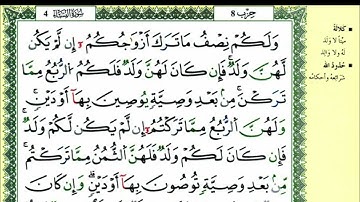 حزب 8
سورة النساء 4
وَلَكُمْ نِصْفُ مَا تَرَكَ أَزْوَٰجُكُمْ إِن لَّمْ يَكُن
لَّهُنَّ وَلَدٌ فَإِن كَانَ لَهُنَّ وَلَدٌ فَلَكُمُ ٱلرُّبُعُ مِمَّا
تَرَكْنَ مِنۢ بَعْدِ وَصِيَّةٍ يُوصِينَ بِهَآ أَوْ دَيْنٍ
وَلَهُنَّ ٱلرُّبُعُ مِمَّا تَرَكْتُمْ إِن لَّمْ يَكُن لَّكُمْ وَلَدٌ
فَإِن كَانَ لَكُمْ وَلَدٌ فَلَهُنَّ ٱلثُّمُنُ مِمَّا تَرَكْتُم
مِّنۢ بَعْدِ وَصِيَّةٍ تُوصُونَ بِهَآ أَوْ دَيْنٍ وَإِن كَانَ
كلالة
ميّتا لا ولد
له ولا والد
حدود الله
شرائعه وأحكامه